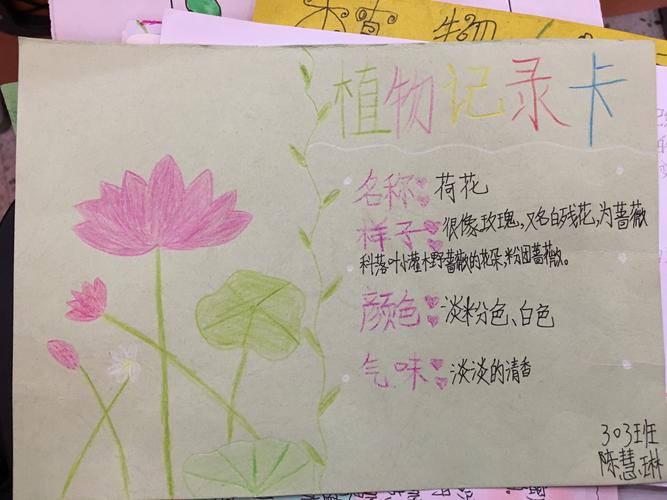 植物
植物记录卡
名称:荷花
样子:很像玫瑰,又名白残花,为蔷薇
科落叶小灌木野蔷薇的花朵,粉团蔷薇。
颜色:淡粉色、白色
气味:淡淡的清香
303班
陈慧琳